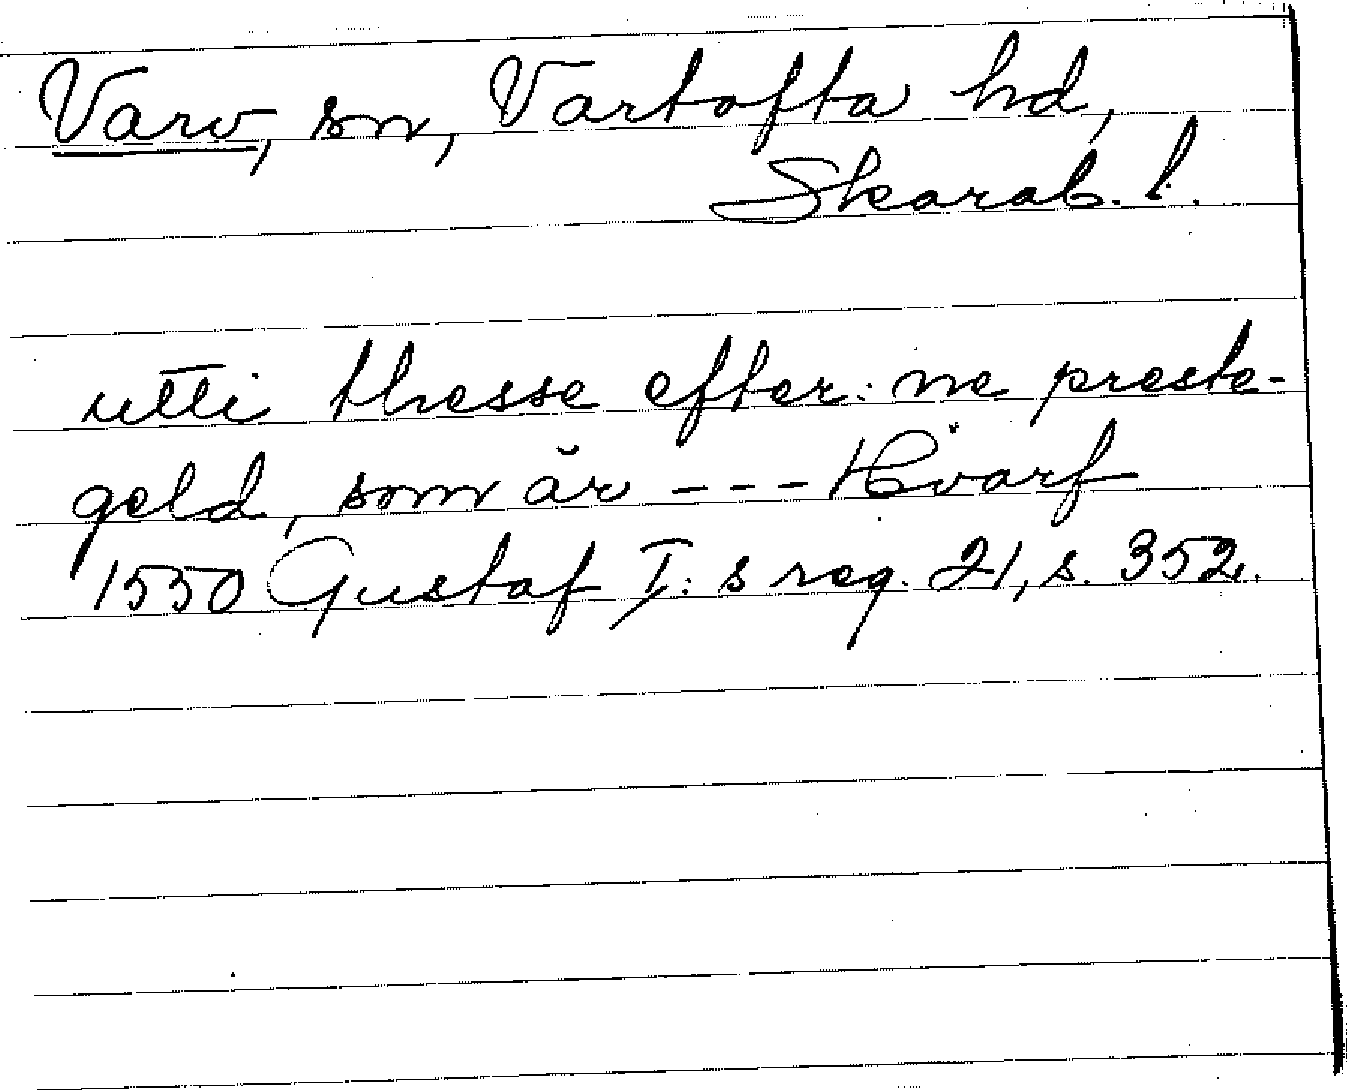 Varv, sn, Vartofta hd,
Skarab. l.
utti thesse efter: ne preste-
geld, som är --- Hvarf
1550 Gustaf I: s reg. 21, s. 352.